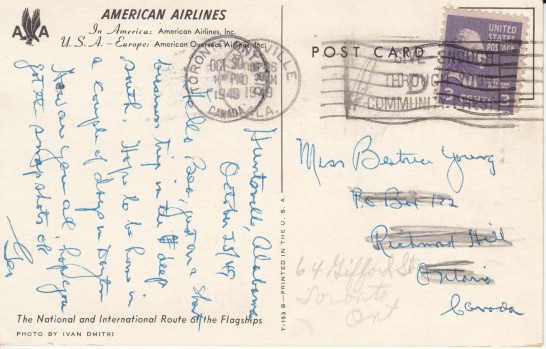 AMERICAN AIRLINES
AA
In America: American Airlines, Inc.
U.S.A.-Europe: American Overseas Airlines, Inc.
Huntsville, Alabama
October 25/49
Hello Bea, just on a short
business trip in the deep
south. Hope to be home in
a couple of days
How are you all, hope you
got the snapshots OK
The National and International Route of the Flagships
PHOTO BY IVAN DMITRI
T-153 B-PRINTED IN THE U.S.A.
POST CARD
TORONTO
OCT 30
1949
CANADA
HUNTSVILLE
1949
ALA.
UNITED
STATES
POSTAGE
THROUGH YOUR
COMMUNITY CHEST
Miss Beatrice Young
PO Box 122
Richmond Hill
Ontario
Canada
64 Gifford St
Toronto
Ont